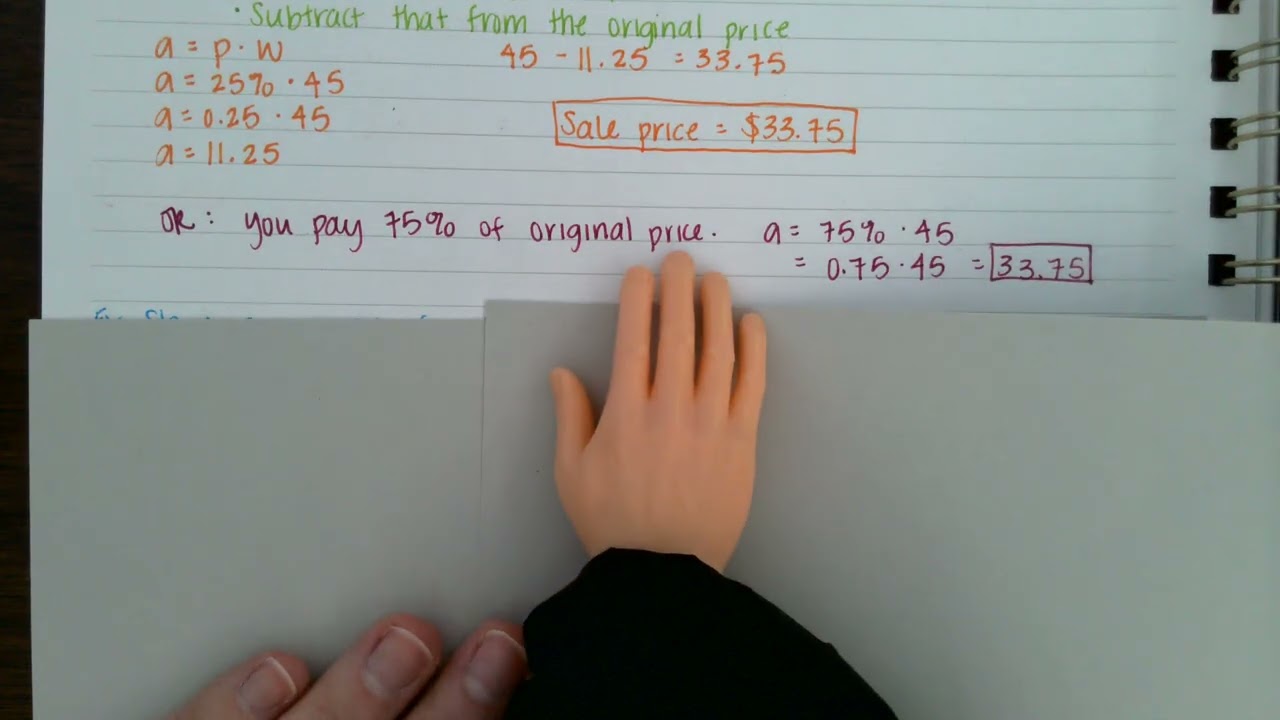 • Subtract that from the original price
a = p · w
45 - 11.25 = 33.75
a = 25% · 45
a = 0.25 · 45
Sale price = $33.75
a = 11.25
OR: you pay 75% of original price. a = 75% · 45
= 0.75 · 45 = 33.75